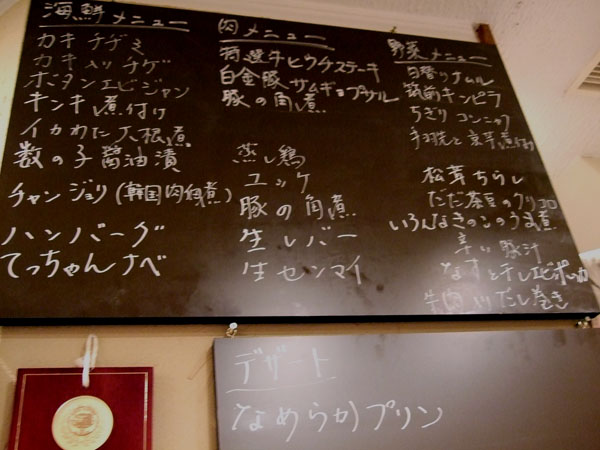 海鮮メニュー
カキチヂミ
カキ入りチゲ
ボタンエビジャン
キンキ煮付け
イカわた大根煮
数の子醤油漬
チャンジョリ(韓国肉佃煮)
ハンバーグ
てっちゃんナベ
肉メニュー
特選牛ヒウチステーキ
白金豚サムギョプサル
豚の角煮
蒸し鶏
ユッケ
豚の角煮
生レバー
生センマイ
野菜メニュー
日替りナムル
筑前キンピラ
ちぎりコンニャク
手羽先と京芋煮付け
松茸ちらし
だだ茶豆のクリコロ
いろんなきのこのうま煮
辛い豚汁
なすと干しエビポッカ
牛肉入りだし巻き
デザート
なめらかプリン